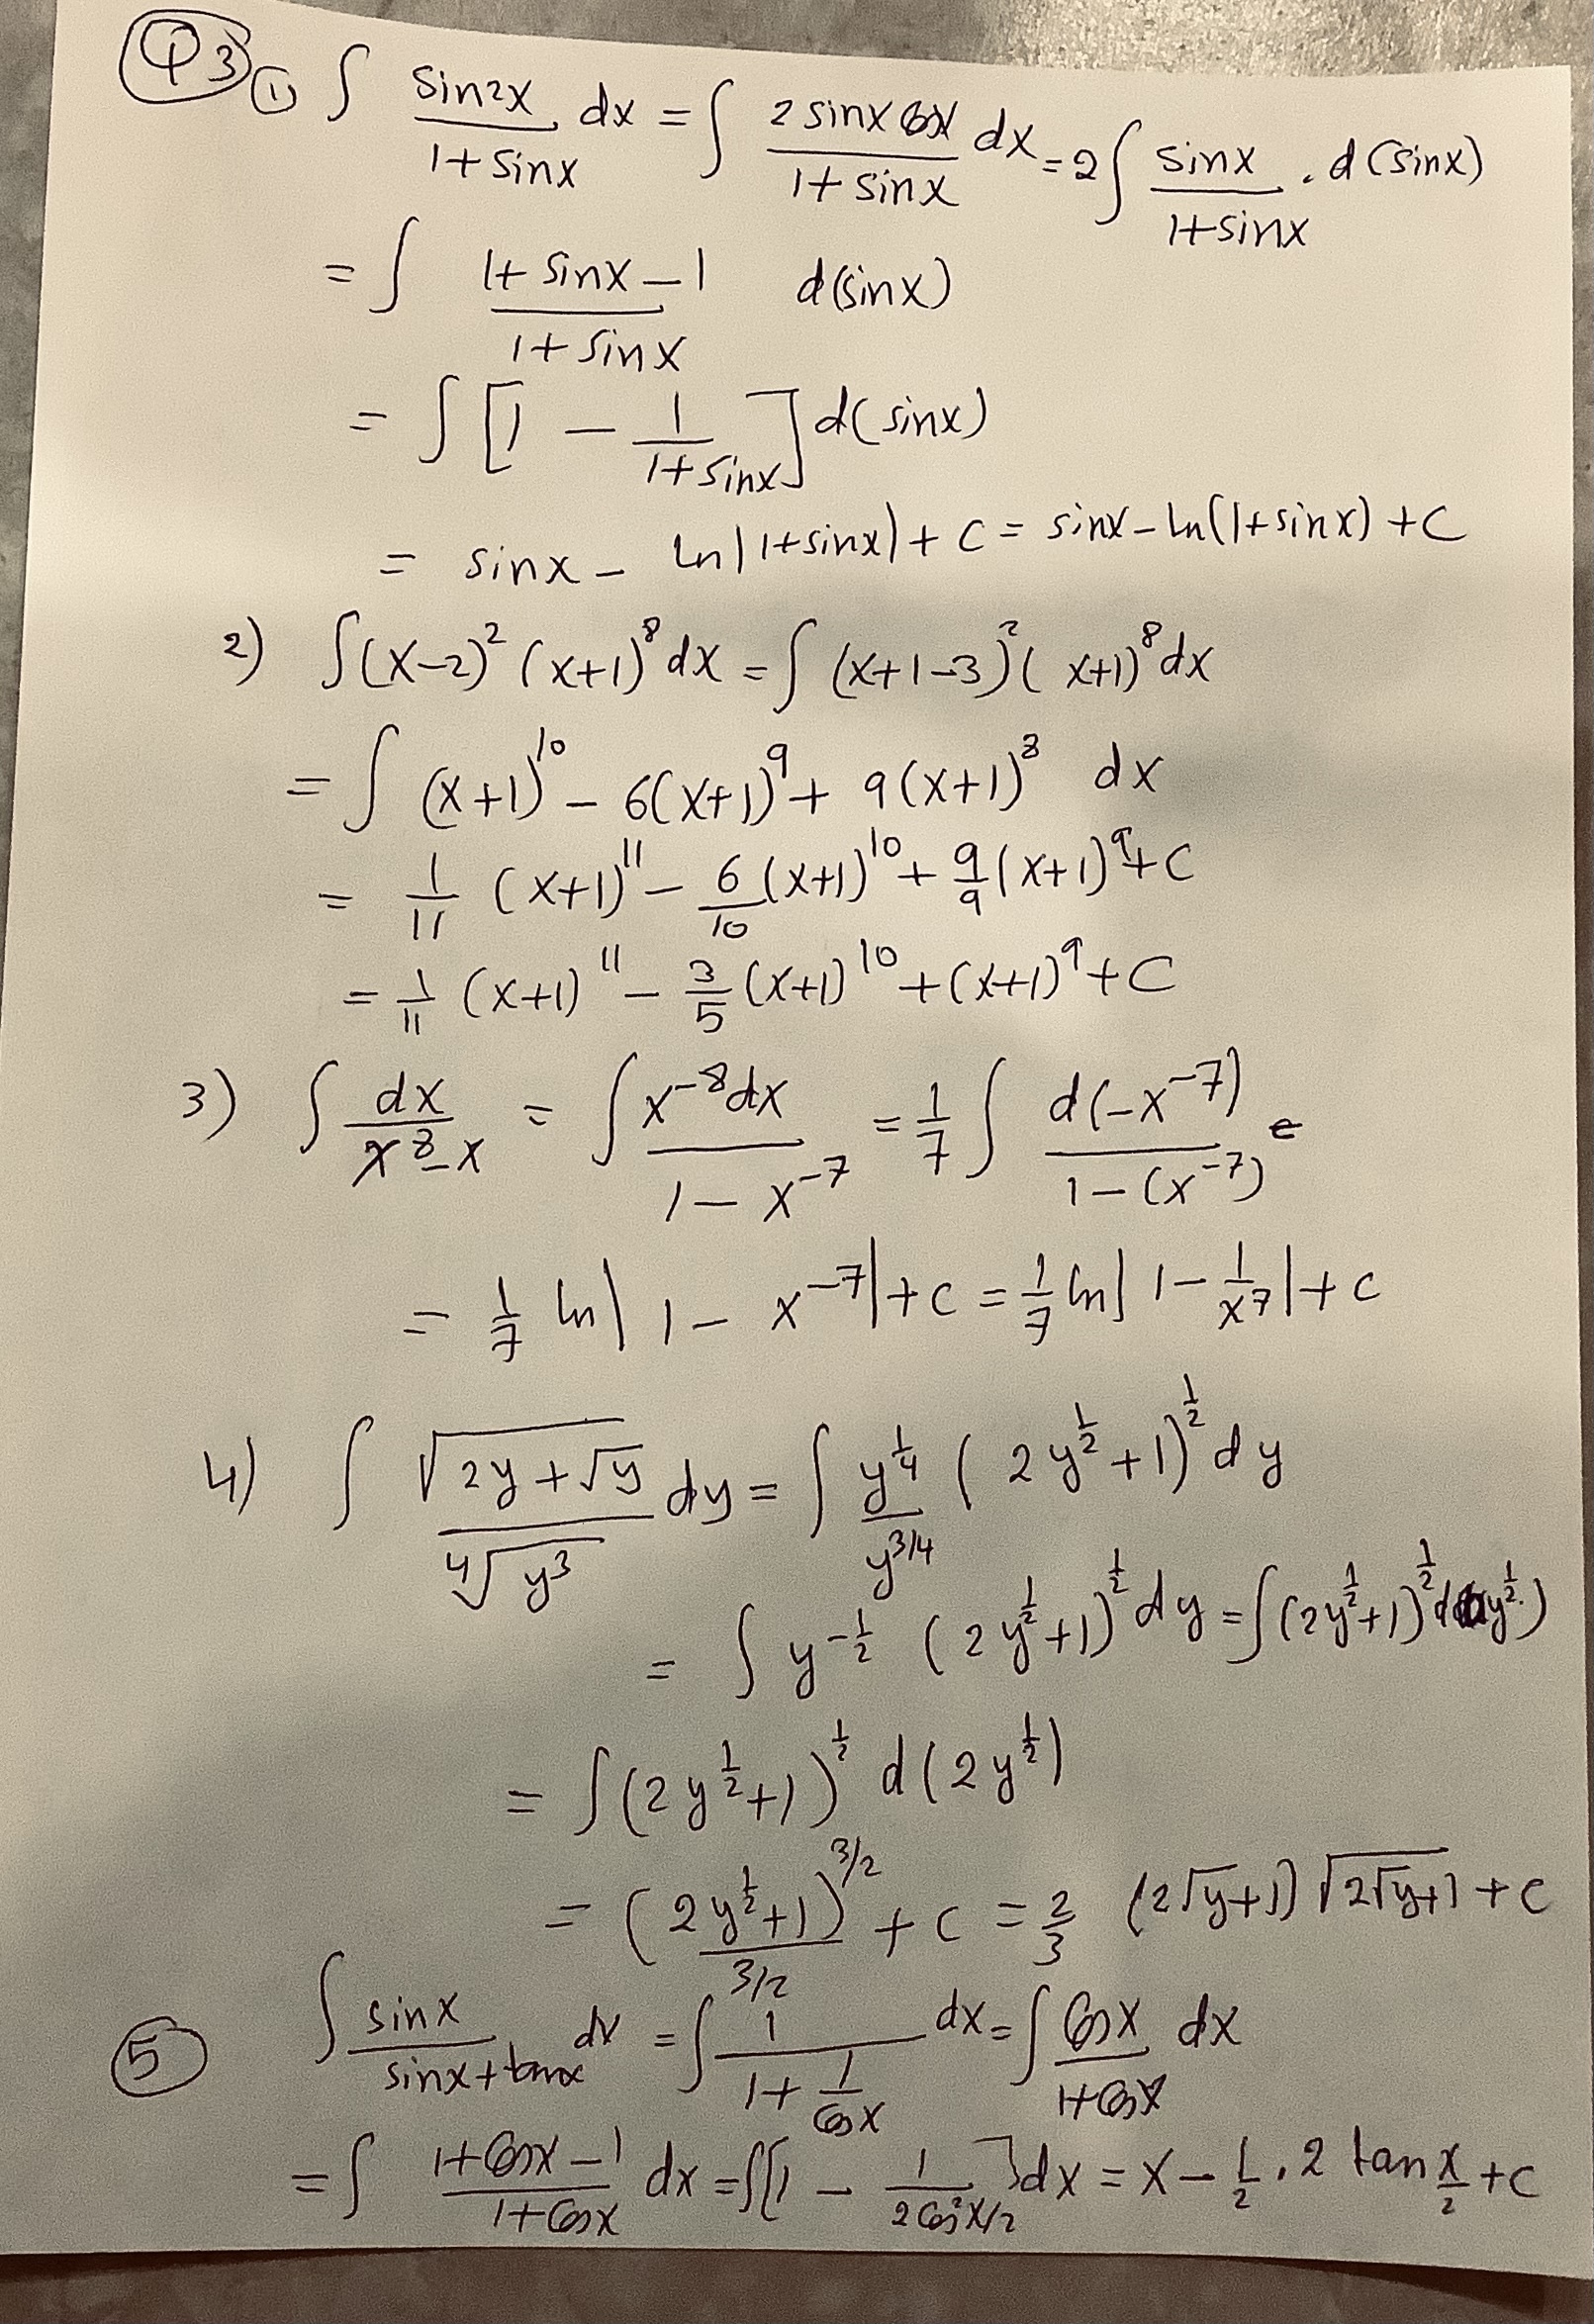 Q3 ① ∫ sin2x / (1+sinx) dx = ∫ 2 sinx cosx / (1+sinx) dx = 2∫ sinx / (1+sinx) . d(sinx)
= ∫ (1+sinx−1) / (1+sinx) d(sinx)
= ∫ [1 − 1/(1+sinx)] d(sinx)
= sinx − ln|1+sinx| + C = sinx − ln(1+sinx) + C
2) ∫(x−2)² (x+1)⁸ dx = ∫ (x+1−3)² (x+1)⁸ dx
= ∫ (x+1)¹⁰ − 6(x+1)⁹ + 9(x+1)⁸ dx
= 1/11 (x+1)¹¹ − 6/10 (x+1)¹⁰ + 9/9 (x+1)⁹ + C
= 1/11 (x+1)¹¹ − 3/5 (x+1)¹⁰ + (x+1)⁹ + C
3) ∫ dx / (x⁸−x) = ∫ x⁻⁸dx / (1−x⁻⁷) = 1/7 ∫ d(−x⁻⁷) / (1−(x⁻⁷)) =
= 1/7 ln|1−x⁻⁷| + C = 1/7 ln|1−1/x⁷| + C
4) ∫ √(2y+√y) / ⁴√(y³) dy = ∫ y^(1/4) / y^(3/4) (2y^(1/2)+1)^(1/2) dy
= ∫ y^(−1/2) (2y^(1/2)+1)^(1/2) dy = ∫(2y^(1/2)+1)^(1/2) d(y^(1/2))
= ∫(2y^(1/2)+1)^(1/2) d(2y^(1/2))
= (2y^(1/2)+1)^(3/2) / (3/2) + C = 2/3 (2√y+1) √(2√y+1) + C
⑤ ∫ sinx / (sinx+tanx) dx = ∫ 1 / (1+1/cosx) dx = ∫ cosx / (1+cosx) dx
= ∫ (1+cosx−1) / (1+cosx) dx = ∫[1 − 1/(2cos²x/2)] dx = x − 1/2 . 2 tan x/2 + C